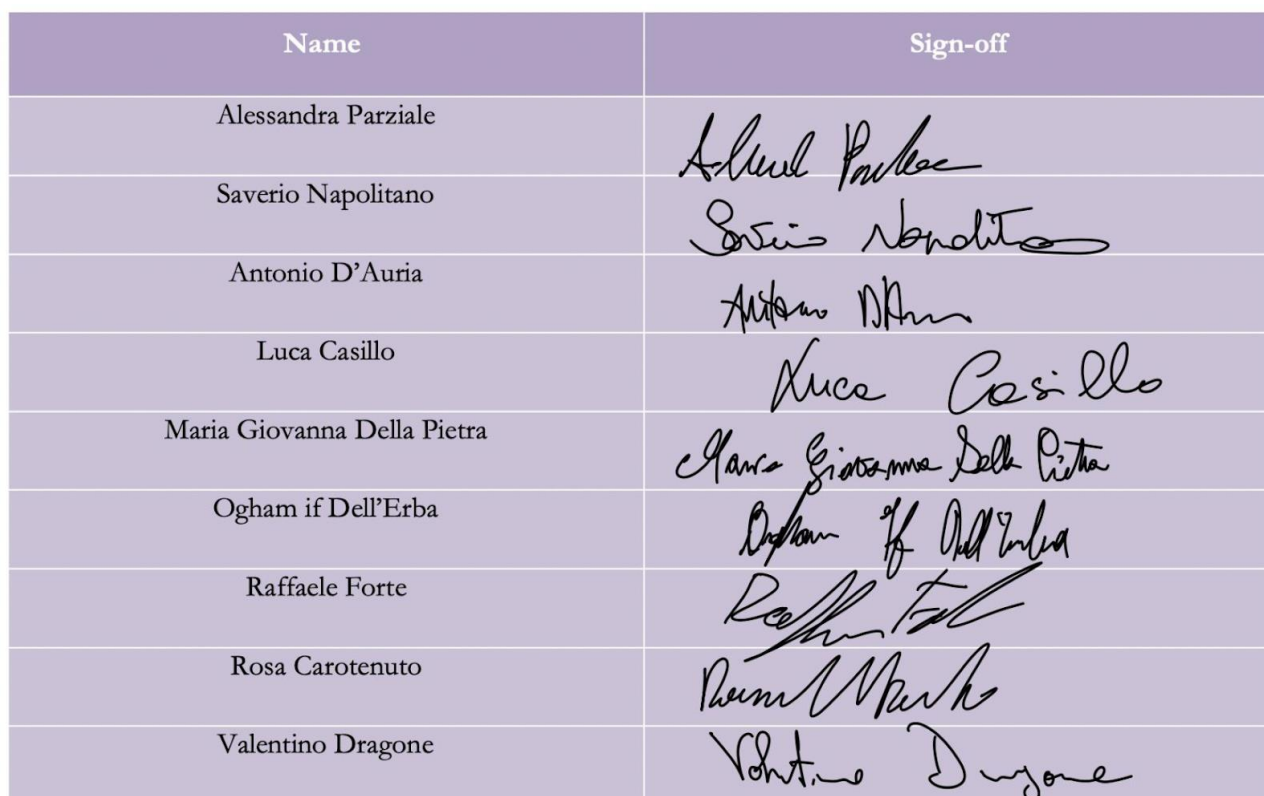 Name Sign-off
Alessandra Parziale
Saverio Napolitano Saverio Napolitano
Antonio D'Auria Antonio
Luca Casillo Luca Casillo
Maria Giovanna Della Pietra Maria Giovanna Della Pietra
Ogham if Dell'Erba Ogham if Dell'Erba
Raffaele Forte
Rosa Carotenuto
Valentino Dragone Valentino Dragone